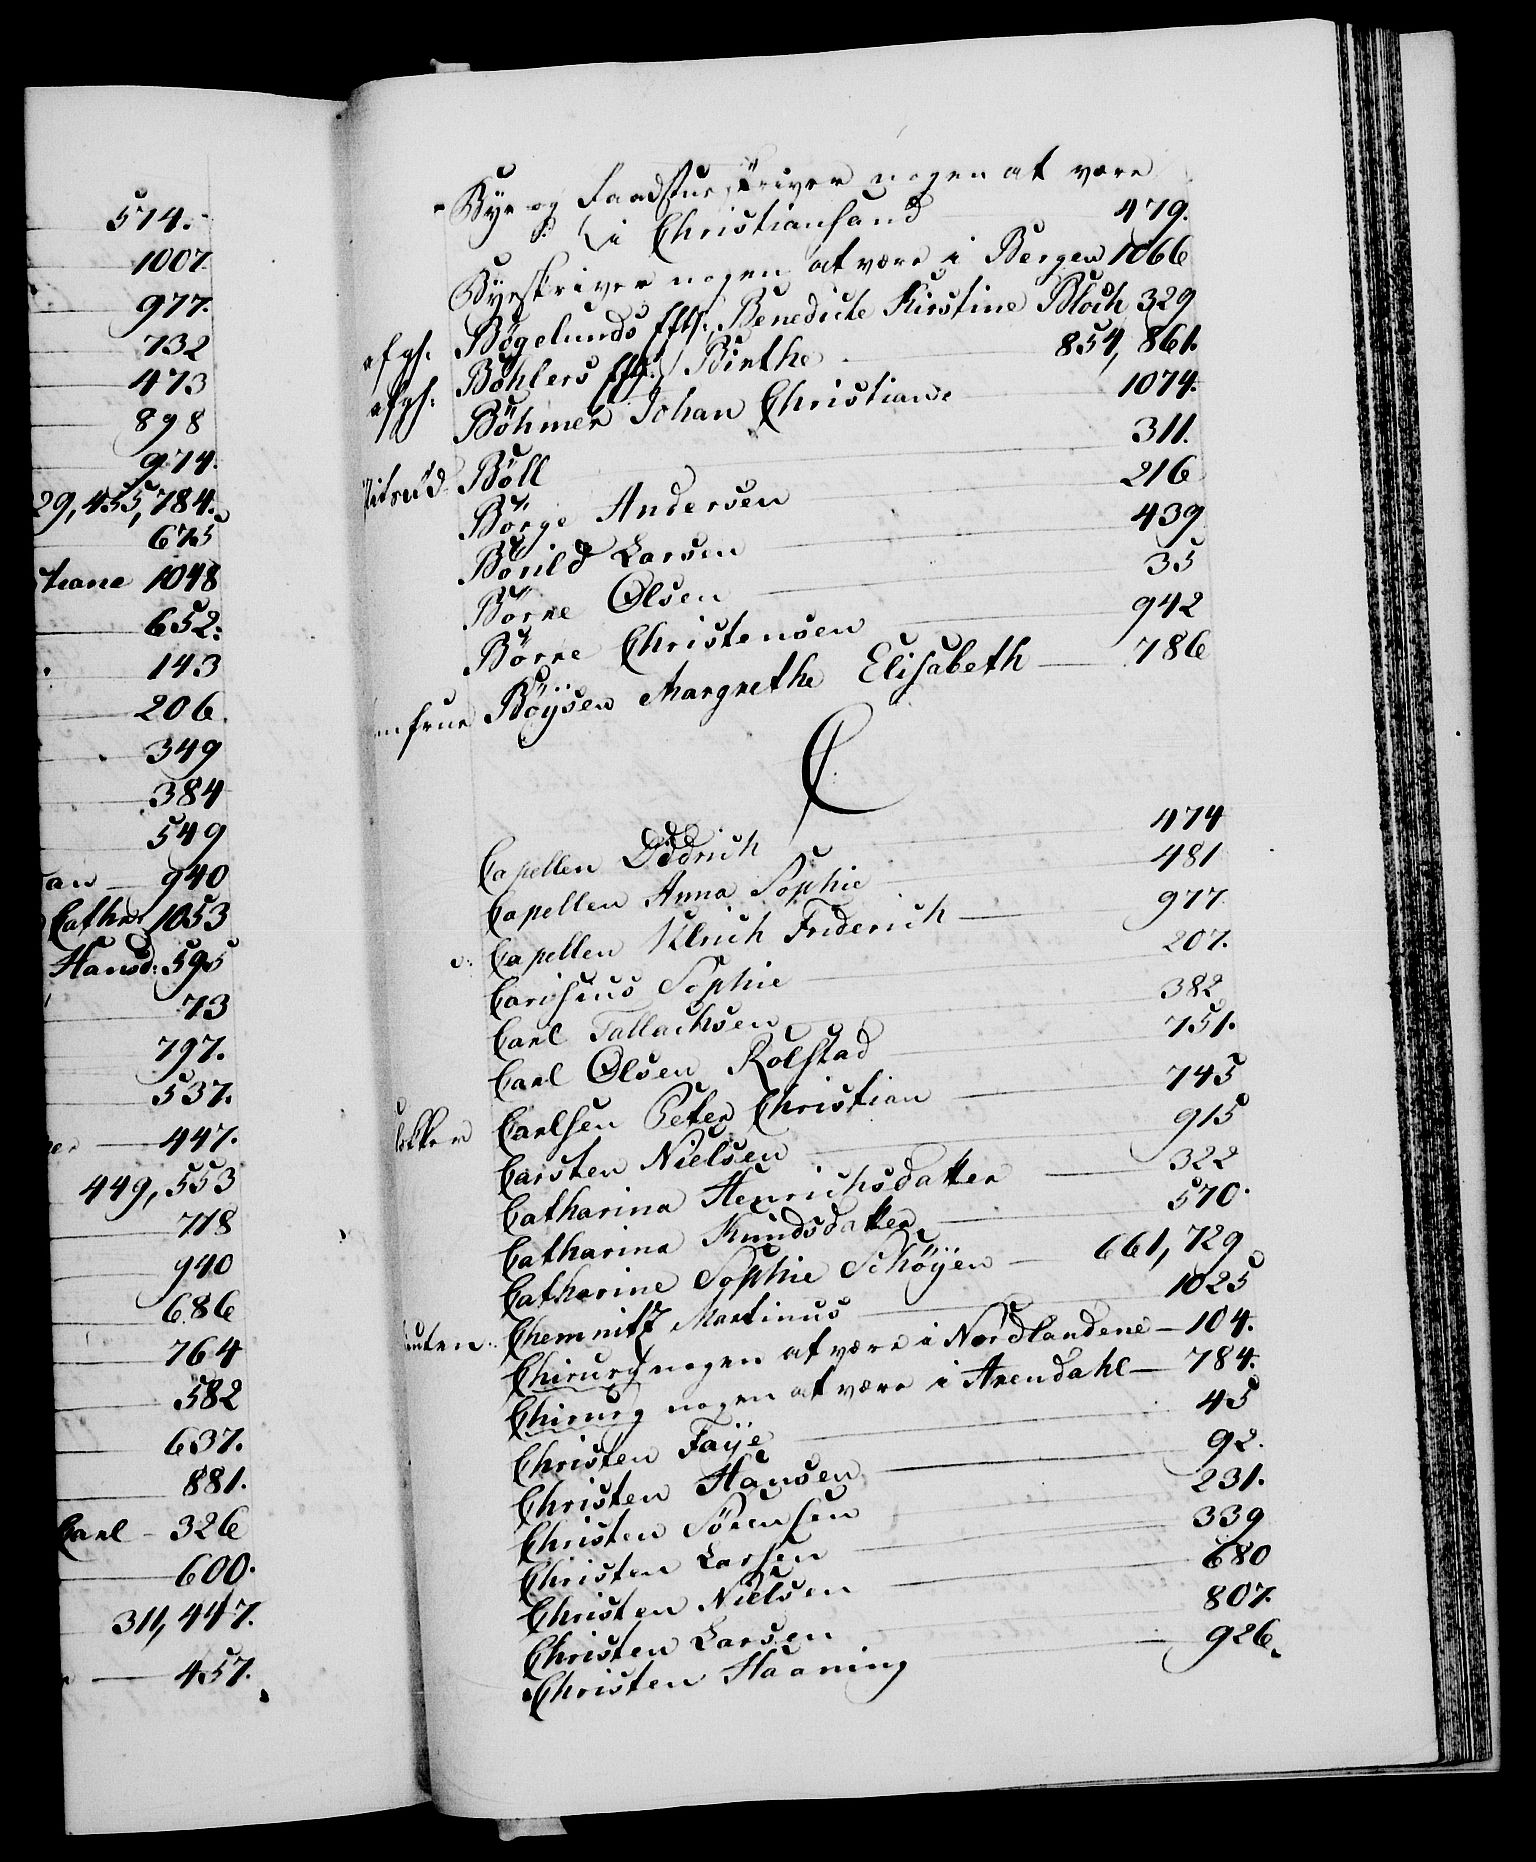 574.
1007.
977.
732
473
898
974.
29, 455, 784.
675
stiane 1048
652.
143
206.
349
384
549
an 940
Cathr 1053
Hansd: 595
73
797.
537.
er 447.
449, 553
718
940
686
764
582
637.
881.
Carl 326
600.
311, 447.
457.
Bye og Raadstueskriver nogen at være
i Christiansand 479.
Byeskriver nogen at være i Bergen 1066
Bøgelunds Efts. Benedicte Kirstine Bloch 329
Böhlers Birthe 854, 861.
Böhmer Johan Christian 1074.
Böll 311.
Börge Andersen 216
Börild Larsen 439
Börre Olsen 35
Börre Christensen 942
frue Böysen Margrethe Elisabeth 786
C.
Capellen Didrich 474
Capellen Anna Sophie 481
Capellen Ulrich Friderich 977
Carisius Sophie 207.
Carl Tallachsen 382
Carl Olsen Rolstad 751.
Carlsen Peter Christian 745
Carsten Nielsen 915
Catharina Henrichsdatter 322
Catharina Knudsdatter 570.
Catharine Sophie Schöyen 661, 729
Chemnitz Martinus 1025
Chirurg nogen at være i Nordlandene 104.
Chirurg nogen at være i Arendahl 784.
Christen Faije 45
Christen Hansen 92.
Christen Sörensen 231.
Christen Larsen 339
Christen Nielsen 680
Christen Larsen 807.
Christen Haaning 926.